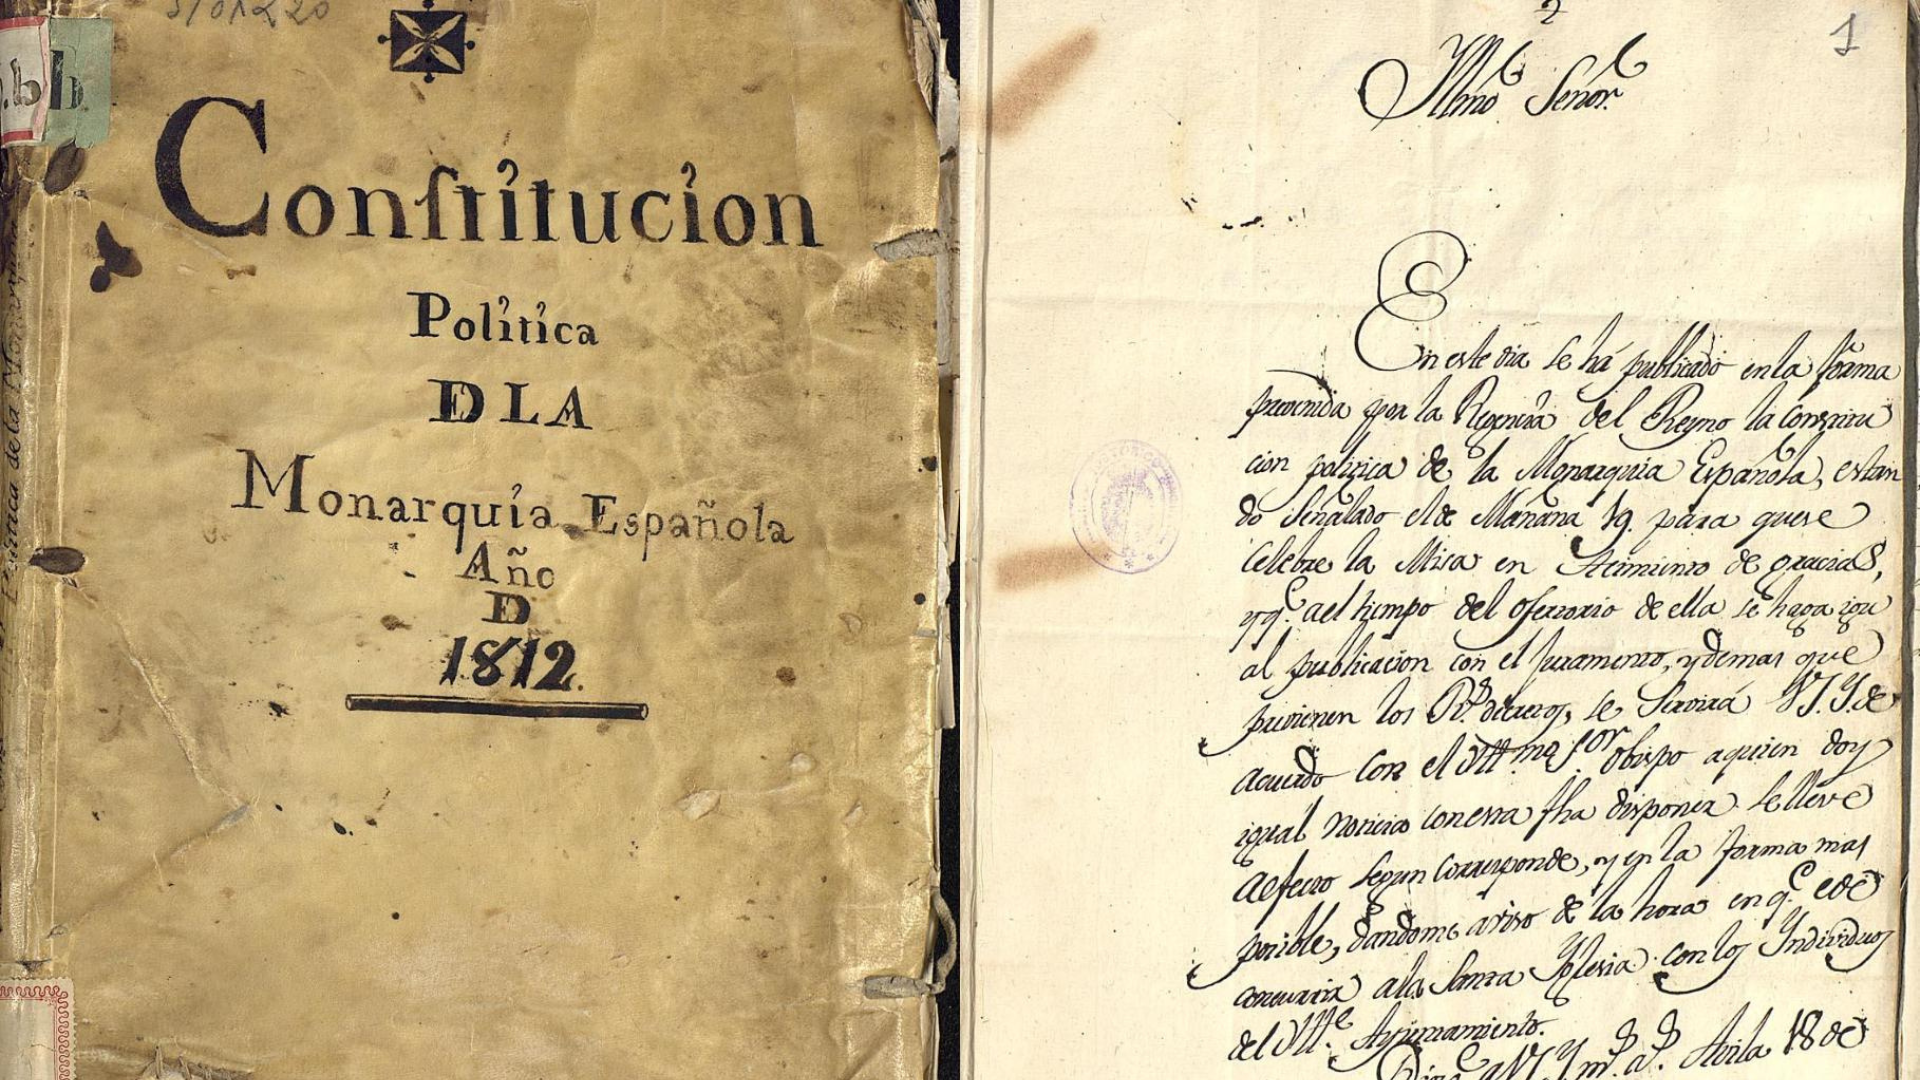 5/01220
b
b
Constitucion
Politica
D LA
Monarquia Española
Año
D
1812.
2
1
Yllmo Señor.
En este dia se há publicado en la forma
prevenida por la Regencia del Reyno la constitu
cion politica de la Monarquia Española, estan
do Señalado el de Mañana 19. para que se
Celebre la Misa en Acimiento de gracias,
y q.e al tiempo del ofertorio de ella se haga igu
al publicacion con el Juramento, y demas que
previenen los R.s decretos, se Servirá V.S.Y. de
acuerdo con el Yltmo Sor Obispo a quien doy
igual noticia con esta fha disponer se lleve
á efecto segun corresponde, y en la forma mas
posible, dandome aviso de la hora en q.e e de
concurrir a la Santa Yglesia con los Yndividuos
del Yltte Ayuntamiento.
Avila 18 de